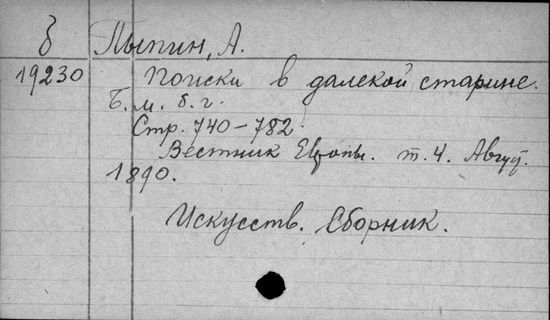 б Пыпин, А.
19230 Поиски в далекой старине.
Б. м. б. г.
Стр. 740-782.
Вестник Европы. т. 4. Август.
1890.
Искусств. Сборник.